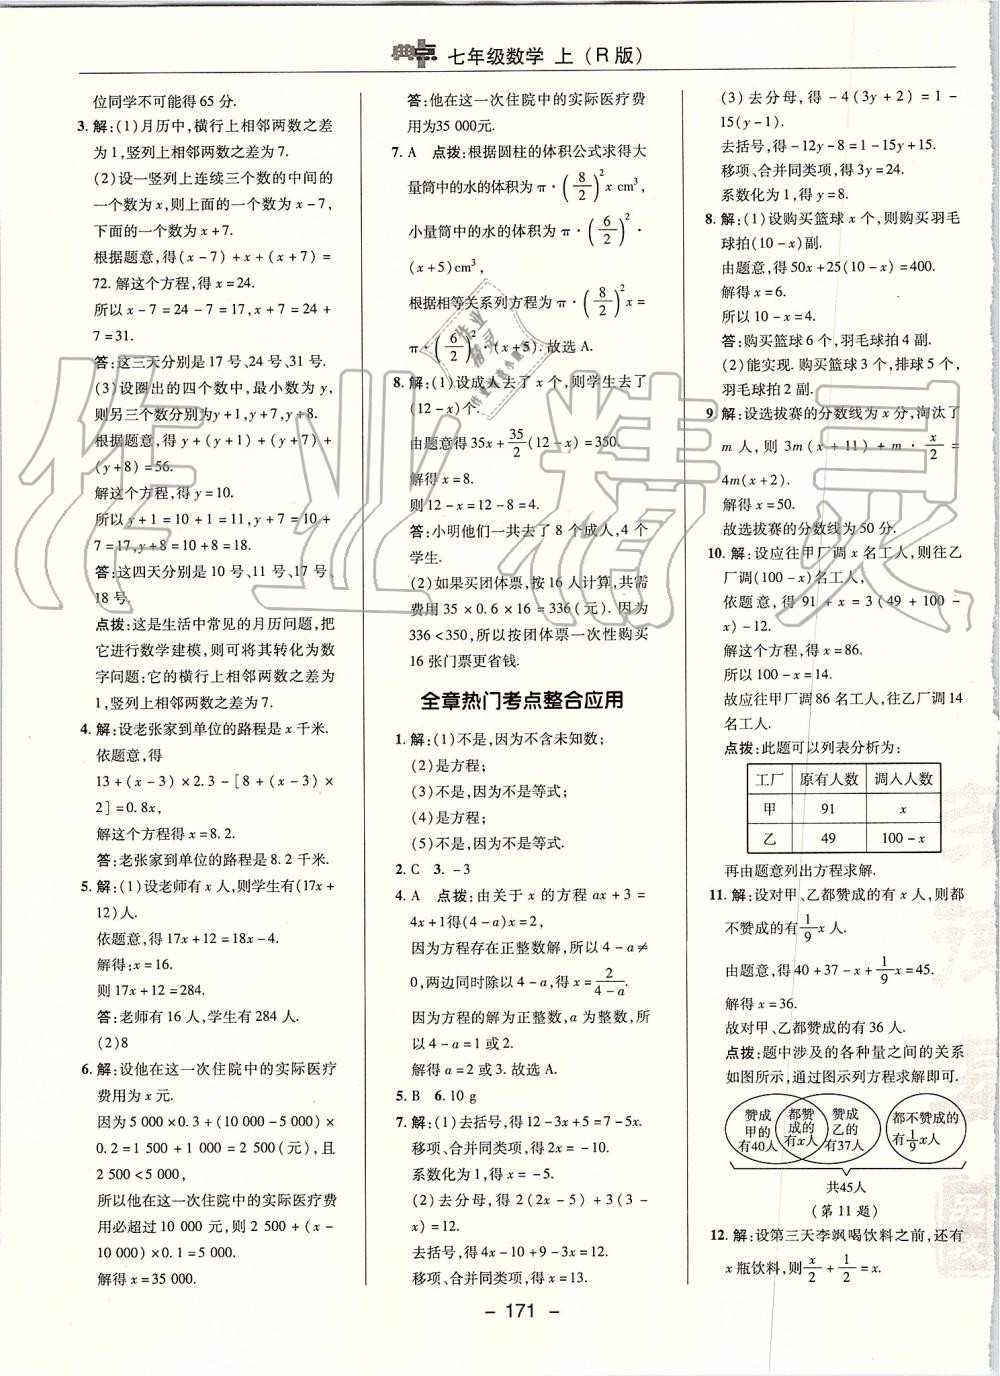 典点 七年级数学 上(R版)
位同学不可能得65分.
3. 解:(1)月历中,横行上相邻两数之差
为1,竖列上相邻两数之差为7.
(2)设一竖列上连续三个数的中间的
一个数为x,则上面的一个数为x-7,
下面的一个数为x+7.
根据题意,得(x-7)+x+(x+7)=
72.解这个方程,得x=24.
所以x-7=24-7=17,x+7=24+
7=31.
答:这三天分别是17号、24号、31号.
(3)设圈出的四个数中,最小数为y,
则另三个数分别为y+1,y+7,y+8.
根据题意,得y+(y+1)+(y+7)+
(y+8)=56.
解这个方程,得y=10.
所以y+1=10+1=11,y+7=10+
7=17,y+8=10+8=18.
答:这四天分别是10号、11号、17号、
18号.
点拨:这是生活中常见的月历问题,把
它进行数学建模,则可将其转化为数
字问题;它的横行上相邻两数之差为
1,竖列上相邻两数之差为7.
4. 解:设老张家到单位的路程是x千米.
依题意,得
13+(x-3)×2.3-[8+(x-3)×
2]=0.8x,
解这个方程得x=8.2.
答:老张家到单位的路程是8.2千米.
5. 解:(1)设老师有x人,则学生有(17x+
12)人.
依题意,得17x+12=18x-4.
解得:x=16.
则17x+12=284.
答:老师有16人,学生有284人.
(2)8
6. 解:设他在这一次住院中的实际医疗
费用为x元.
因为5 000×0.3+(10 000-5 000)×
0.2=1 500+1 000=2 500(元),且
2 500<5 000,
所以他在这一次住院中的实际医疗费
用必超过10 000元,则2 500+(x-
10 000)×0.1=5 000.
解得x=35 000.
答:他在这一次住院中的实际医疗费
用为35 000元.
7. A 点拨:根据圆柱的体积公式求得大
量筒中的水的体积为π·(8/2)²x cm³,
小量筒中的水的体积为π·(6/2)²·
(x+5)cm³,
根据相等关系列方程为π·(8/2)²x=
π·(6/2)²·(x+5).故选A.
8. 解:(1)设成人去了x个,则学生去了
(12-x)个.
由题意得35x+35/2(12-x)=350.
解得x=8.
则12-x=12-8=4.
答:小明他们一共去了8个成人,4个
学生.
(2)如果买团体票,按16人计算,共需
费用35×0.6×16=336(元).因为
336<350,所以按团体票一次性购买
16张门票更省钱.
全章热门考点整合应用
1. 解:(1)不是,因为不含未知数;
(2)是方程;
(3)不是,因为不是等式;
(4)是方程;
(5)不是,因为不是等式.
2. C 3. -3
4. A 点拨:由关于x的方程ax+3=
4x+1得(4-a)x=2,
因为方程存在正整数解,所以4-a≠
0,两边同时除以4-a,得x=2/(4-a).
因为方程的解为正整数,a为整数,所
以4-a=1或2.
解得a=2或3.故选A.
5. B 6. 10 g
7. 解:(1)去括号,得12-3x+5=7-5x.
移项、合并同类项,得2x=-10.
系数化为1,得x=-5.
(2)去分母,得2(2x-5)+3(3-
x)=12.
去括号,得4x-10+9-3x=12.
移项、合并同类项,得x=13.
(3)去分母,得-4(3y+2)=1-
15(y-1).
去括号,得-12y-8=1-15y+15.
移项、合并同类项,得3y=24.
系数化为1,得y=8.
8. 解:(1)设购买篮球x个,则购买羽毛
球拍(10-x)副.
由题意,得50x+25(10-x)=400.
解得x=6.
所以10-x=4.
答:购买篮球6个,羽毛球拍4副.
(2)能实现.购买篮球3个,排球5个,
羽毛球拍2副.
9. 解:设选拔赛的分数线为x分,淘汰了
m人,则3m(x+11)+m·x/2=
4m(x+2).
解得x=50.
故选拔赛的分数线为50分.
10. 解:设应往甲厂调x名工人,则往乙
厂调(100-x)名工人,
依题意,得91+x=3(49+100-
x)-12.
解这个方程,得x=86.
所以100-x=14.
故应往甲厂调86名工人,往乙厂调14
名工人.
点拨:此题可以列表分析为:
工厂 原有人数 调入人数
甲 91 x
乙 49 100-x
再由题意列出方程求解.
11. 解:设对甲、乙都赞成的有x人,则都
不赞成的有1/9x人.
由题意,得40+37-x+1/9x=45.
解得x=36.
故对甲、乙都赞成的有36人.
点拨:题中涉及的各种量之间的关系
如图所示,通过图示列方程求解即可.
赞成甲的有40人 都赞成的有x人 赞成乙的有37人 都不赞成的有1/9x人
共45人
(第11题)
12. 解:设第三天李飒喝饮料之前,还有
x瓶饮料,则x/2+1/2=x.
- 171 -
作业精灵